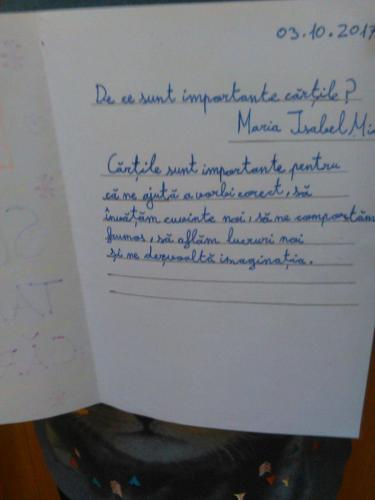 03.10.2017
De ce sunt importante cărțile?
Maria Isabel
Cărțile sunt importante pentru
că ne ajută a vorbi corect, să
învățăm cuvinte noi, să ne comportăm
frumos, să aflăm lucruri noi
și ne dezvoltă imaginația.